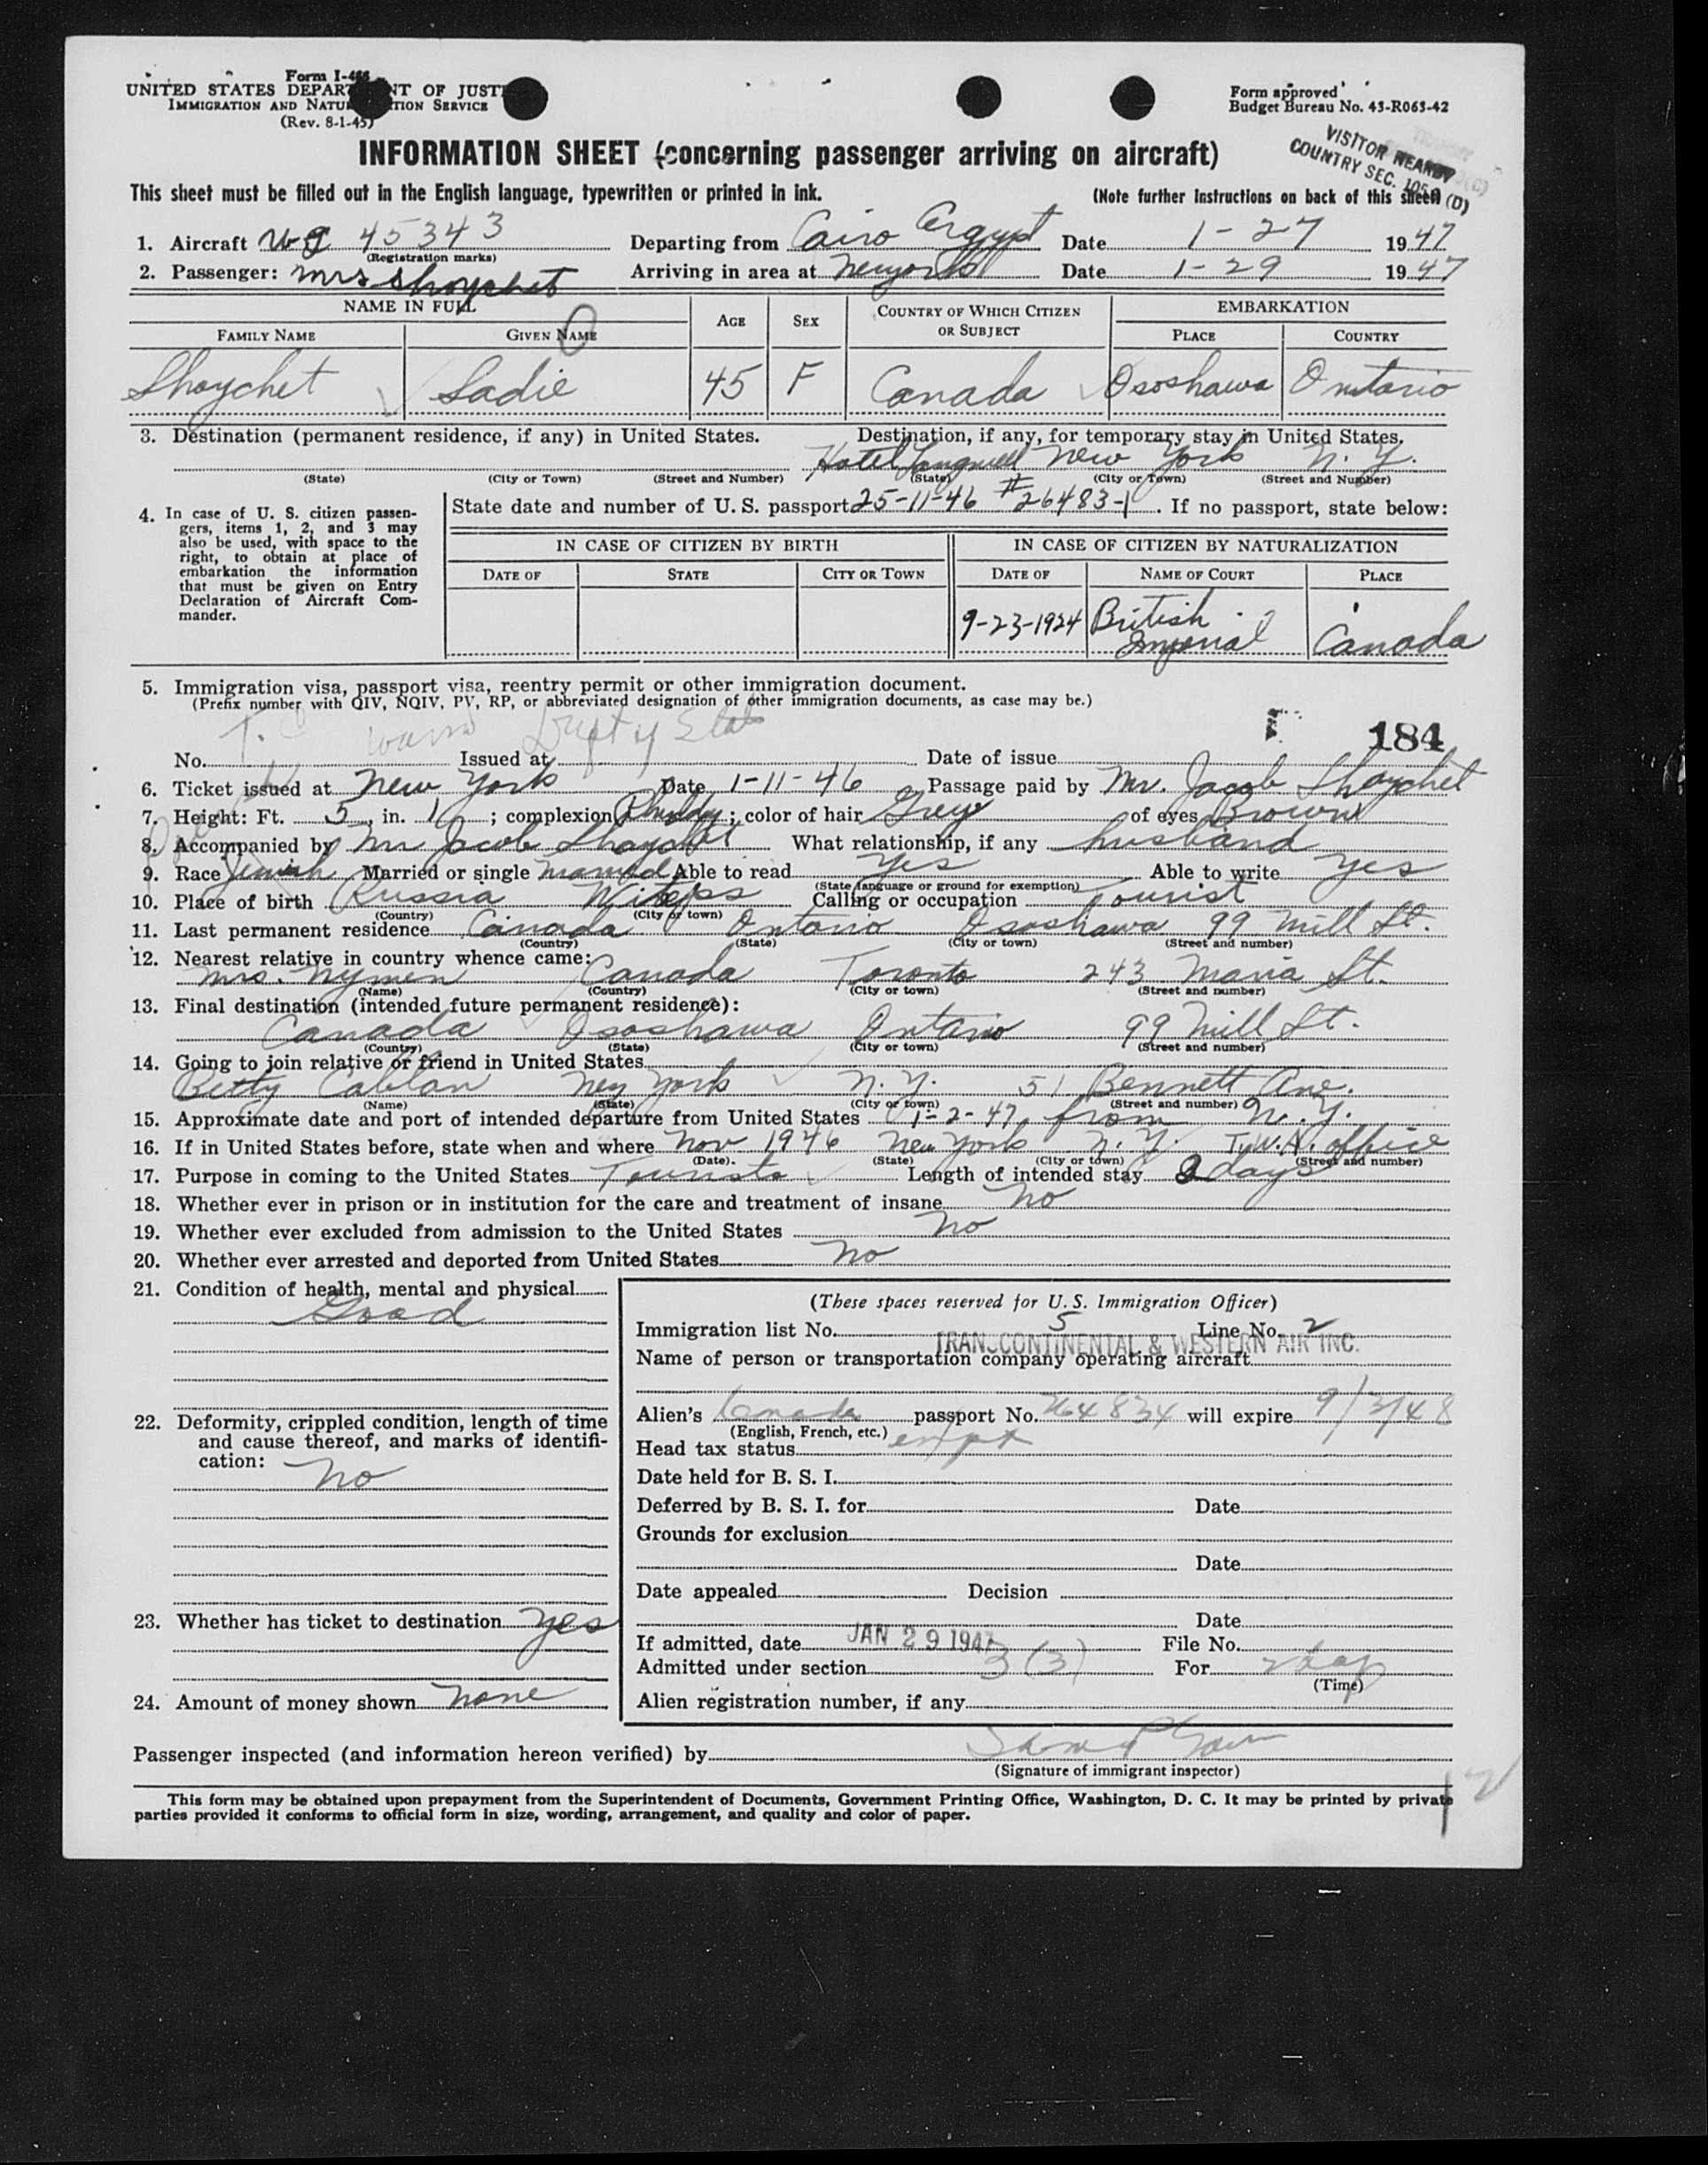 Form I-466
UNITED STATES DEPARTMENT OF JUSTICE
IMMIGRATION AND NATURALIZATION SERVICE
(Rev. 8-1-45)
Form approved
Budget Bureau No. 43-R063-42
VISITOR NEARBY
COUNTRY SEC. 105.3 (D)
INFORMATION SHEET (concerning passenger arriving on aircraft)
This sheet must be filled out in the English language, typewritten or printed in ink. (Note further instructions on back of this sheet)
1. Aircraft 45343 Departing from Cairo Date 1-27 1947
(Registration marks)
2. Passenger: Mrs Shoychet Arriving in area at Newyork Date 1-29 1947
NAME IN FULL AGE SEX COUNTRY OF WHICH CITIZEN OR SUBJECT EMBARKATION
FAMILY NAME GIVEN NAME PLACE COUNTRY
Shoychet Sadie 45 F Canada Ososhawa Ontario
3. Destination (permanent residence, if any) in United States. Destination, if any, for temporary stay in United States.
Hotel New York N. Y.
(State) (City or Town) (Street and Number) (State) (City or Town) (Street and Number)
4. In case of U. S. citizen passengers, items 1, 2, and 3 may also be used, with space to the right, to obtain at place of embarkation the information that must be given on Entry Declaration of Aircraft Commander.
State date and number of U. S. passport 25-11-46 #26483-1. If no passport, state below:
IN CASE OF CITIZEN BY BIRTH IN CASE OF CITIZEN BY NATURALIZATION
DATE OF STATE CITY OR TOWN DATE OF NAME OF COURT PLACE
9-23-1924 British Imperial Canada
5. Immigration visa, passport visa, reentry permit or other immigration document.
(Prefix number with QIV, NQIV, PV, RP, or abbreviated designation of other immigration documents, as case may be.)
184
No. Issued at Date of issue
6. Ticket issued at New York Date 1-11-46 Passage paid by Mr. Jacob Shoychet
7. Height: Ft. 5, in. 1; complexion ; color of hair Grey of eyes Brown
8. Accompanied by Mr Jacob Shoychet What relationship, if any husband
9. Race Jewish Married or single Married Able to read yes Able to write yes
(State language or ground for exemption)
10. Place of birth Russia Calling or occupation Tourist
(Country) (City or town)
11. Last permanent residence Canada Ontario Ososhawa 99 Mill St.
(Country) (State) (City or town) (Street and number)
12. Nearest relative in country whence came:
Mrs. Nymen Canada Toronto 243 Maria St.
(Name) (Country) (City or town) (Street and number)
13. Final destination (intended future permanent residence):
Canada Ososhawa Ontario 99 Mill St.
(Country) (State) (City or town) (Street and number)
14. Going to join relative or friend in United States
Betty Caplan New York N. Y. 51 Bennett Ave.
(Name) (State) (City or town) (Street and number)
15. Approximate date and port of intended departure from United States 1-2-47 from N. Y.
16. If in United States before, state when and where Nov 1946 New York N. Y. T.W.A. office
(Date) (State) (City or town) (Street and number)
17. Purpose in coming to the United States Tourists Length of intended stay 2 days
18. Whether ever in prison or in institution for the care and treatment of insane No
19. Whether ever excluded from admission to the United States No
20. Whether ever arrested and deported from United States No
21. Condition of health, mental and physical
Good
22. Deformity, crippled condition, length of time and cause thereof, and marks of identification:
No
23. Whether has ticket to destination yes
24. Amount of money shown None
(These spaces reserved for U. S. Immigration Officer)
Immigration list No. 5 Line No. 2
TRANSCONTINENTAL & WESTERN AIR INC.
Name of person or transportation company operating aircraft
Alien's Canada passport No. 264834 will expire 9/3/48
(English, French, etc.)
Head tax status
Date held for B. S. I.
Deferred by B. S. I. for Date
Grounds for exclusion
Date
Date appealed Decision
Date
If admitted, date JAN 29 1947 File No.
Admitted under section 3 (3) For
(Time)
Alien registration number, if any
Passenger inspected (and information hereon verified) by
(Signature of immigrant inspector)
This form may be obtained upon prepayment from the Superintendent of Documents, Government Printing Office, Washington, D. C. It may be printed by private
parties provided it conforms to official form in size, wording, arrangement, and quality and color of paper.